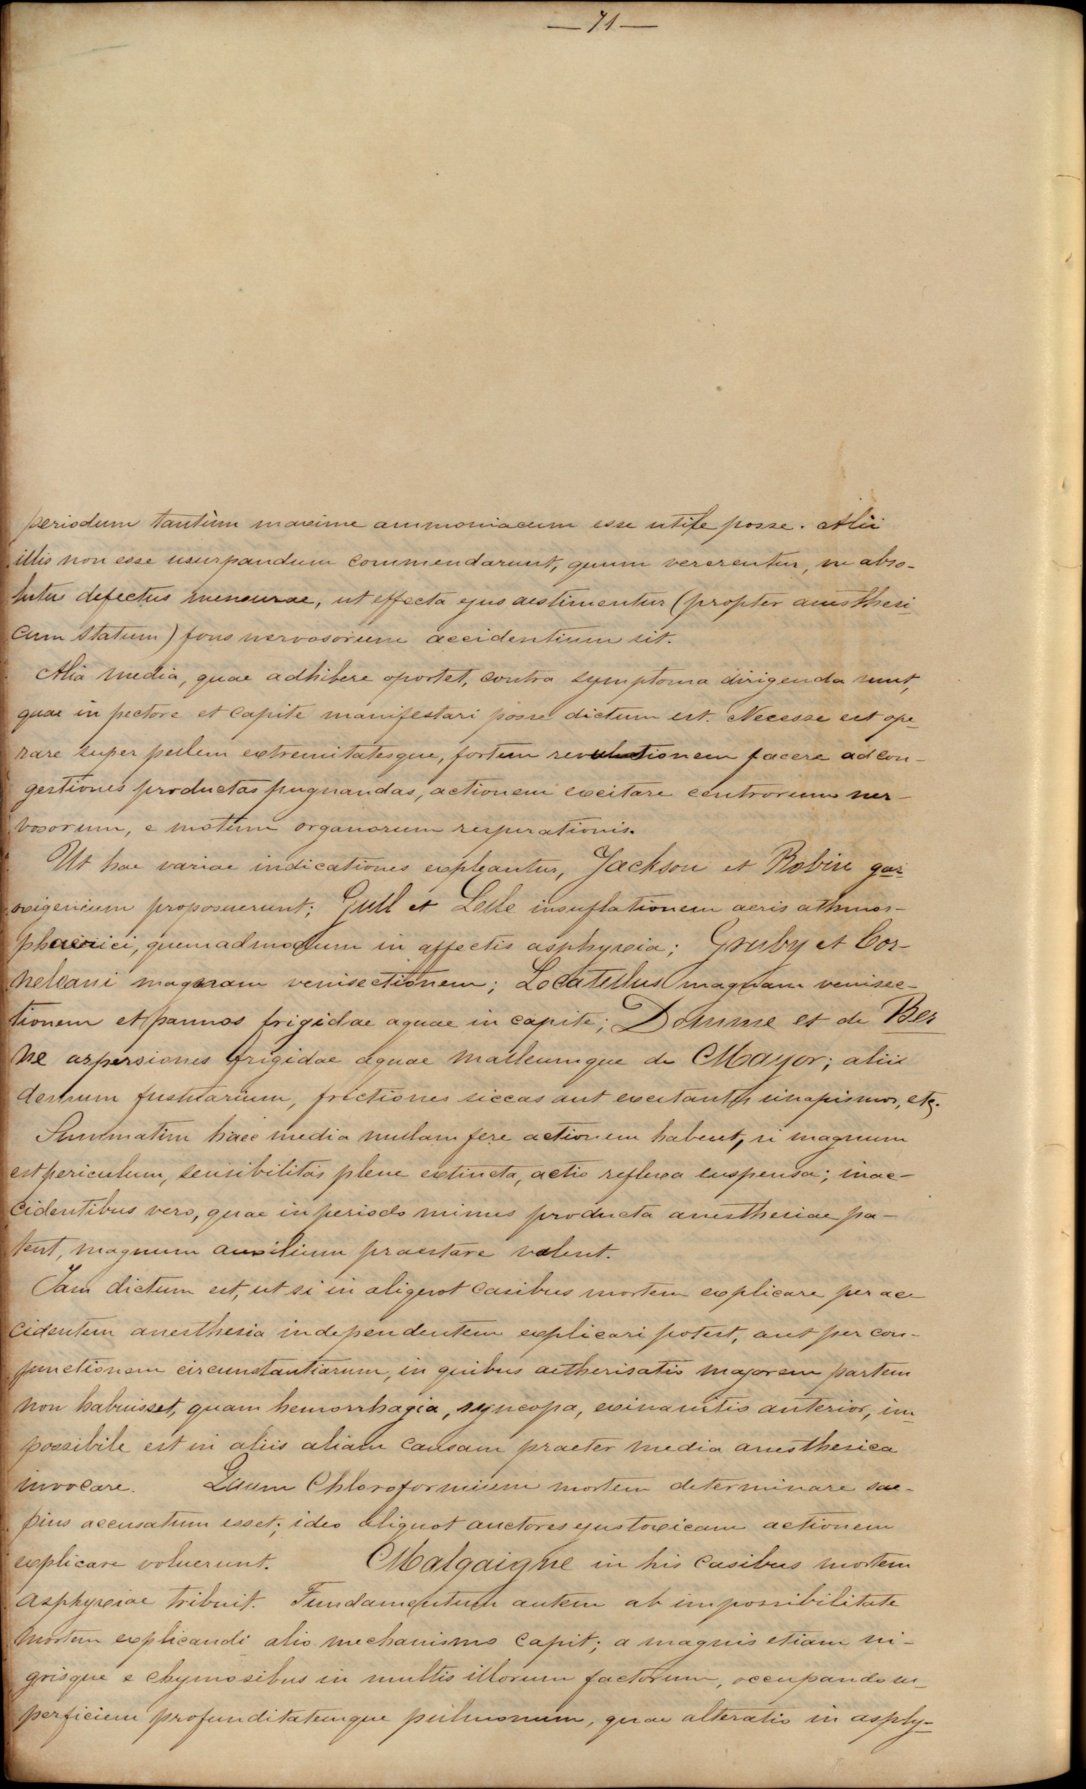 — 71 —
periodum tantùm maxime ammoniacum esse utile posse. Alii
illis non esse usurpandum commendarunt, quum vererentur, ne abso-
lutus defectus mensurae, ut effecta ejus aestimentur (propter anesthesi
cum statum) fons nervosorum accidentium sit.
Alia media, quae adhibere oportet, contra symptoma dirigenda sunt,
quae in pectore et capite manifestari posse dictum est. Necesse est ope-
rare super pellem extremitatesque, fortem revulutionem facere ad con-
gestiones productas pugnandas, actionem excitare centrorum ner-
vosorum, e motum organorum respirationis.
Ut hae variae indicationes expleantur, Jackson et Robin gas
oxigenium proposuerunt; Gull et
 insuflationem aeris athmos-
phaerici, quemadmodum in affectis asphyxia; Gruby et Cor-
neleani magnam venisectionem; Locatellus magnam venisec-
tionem et pannos frigidae aquae in capite; Domme et de Ber
ne aspersiones frigidae aquae malleumque de Mayor; alii
demum fustuarium, frictiones siccas aut excitantes sinapismos, etc.
Summatim haec media nullam fere actionem habent, si magnum
est periculum, sensibilitas plene extincta, actio reflexa suspensa; in ac-
cidentibus vero, quae in periodo minus producta anesthesiae pa-
tent, magnum auxilium praestare valent.
Jam dictum est, ut si in aliquot casibus mortem explicare per ac
cidentem anesthesia independentem explicari potest, aut per con-
junctionem circunstantiarum, in quibus aetherisatio majorem partem
non habuisset, quam hemorrhagia, syncopa, exinanitio anterior, im-
possibile est in aliis aliam causam praeter media anesthesica
invocare. Quum Chloroformium mortem determinare sae-
pius accusatum esset; ideo aliquot auctores ejus toxicam actionem
explicare voluerunt. Malgaigne in his casibus mortem
asphyxiae tribuit. Fundamentum autem ab impossibilitate
mortem explicandi alio mechanismo capit; a magnis etiam ni-
grisque e chymosibus in multis illorum factorum, occupando su-
perficiem profunditatemque pulmonum, quae alteratio in asphy-